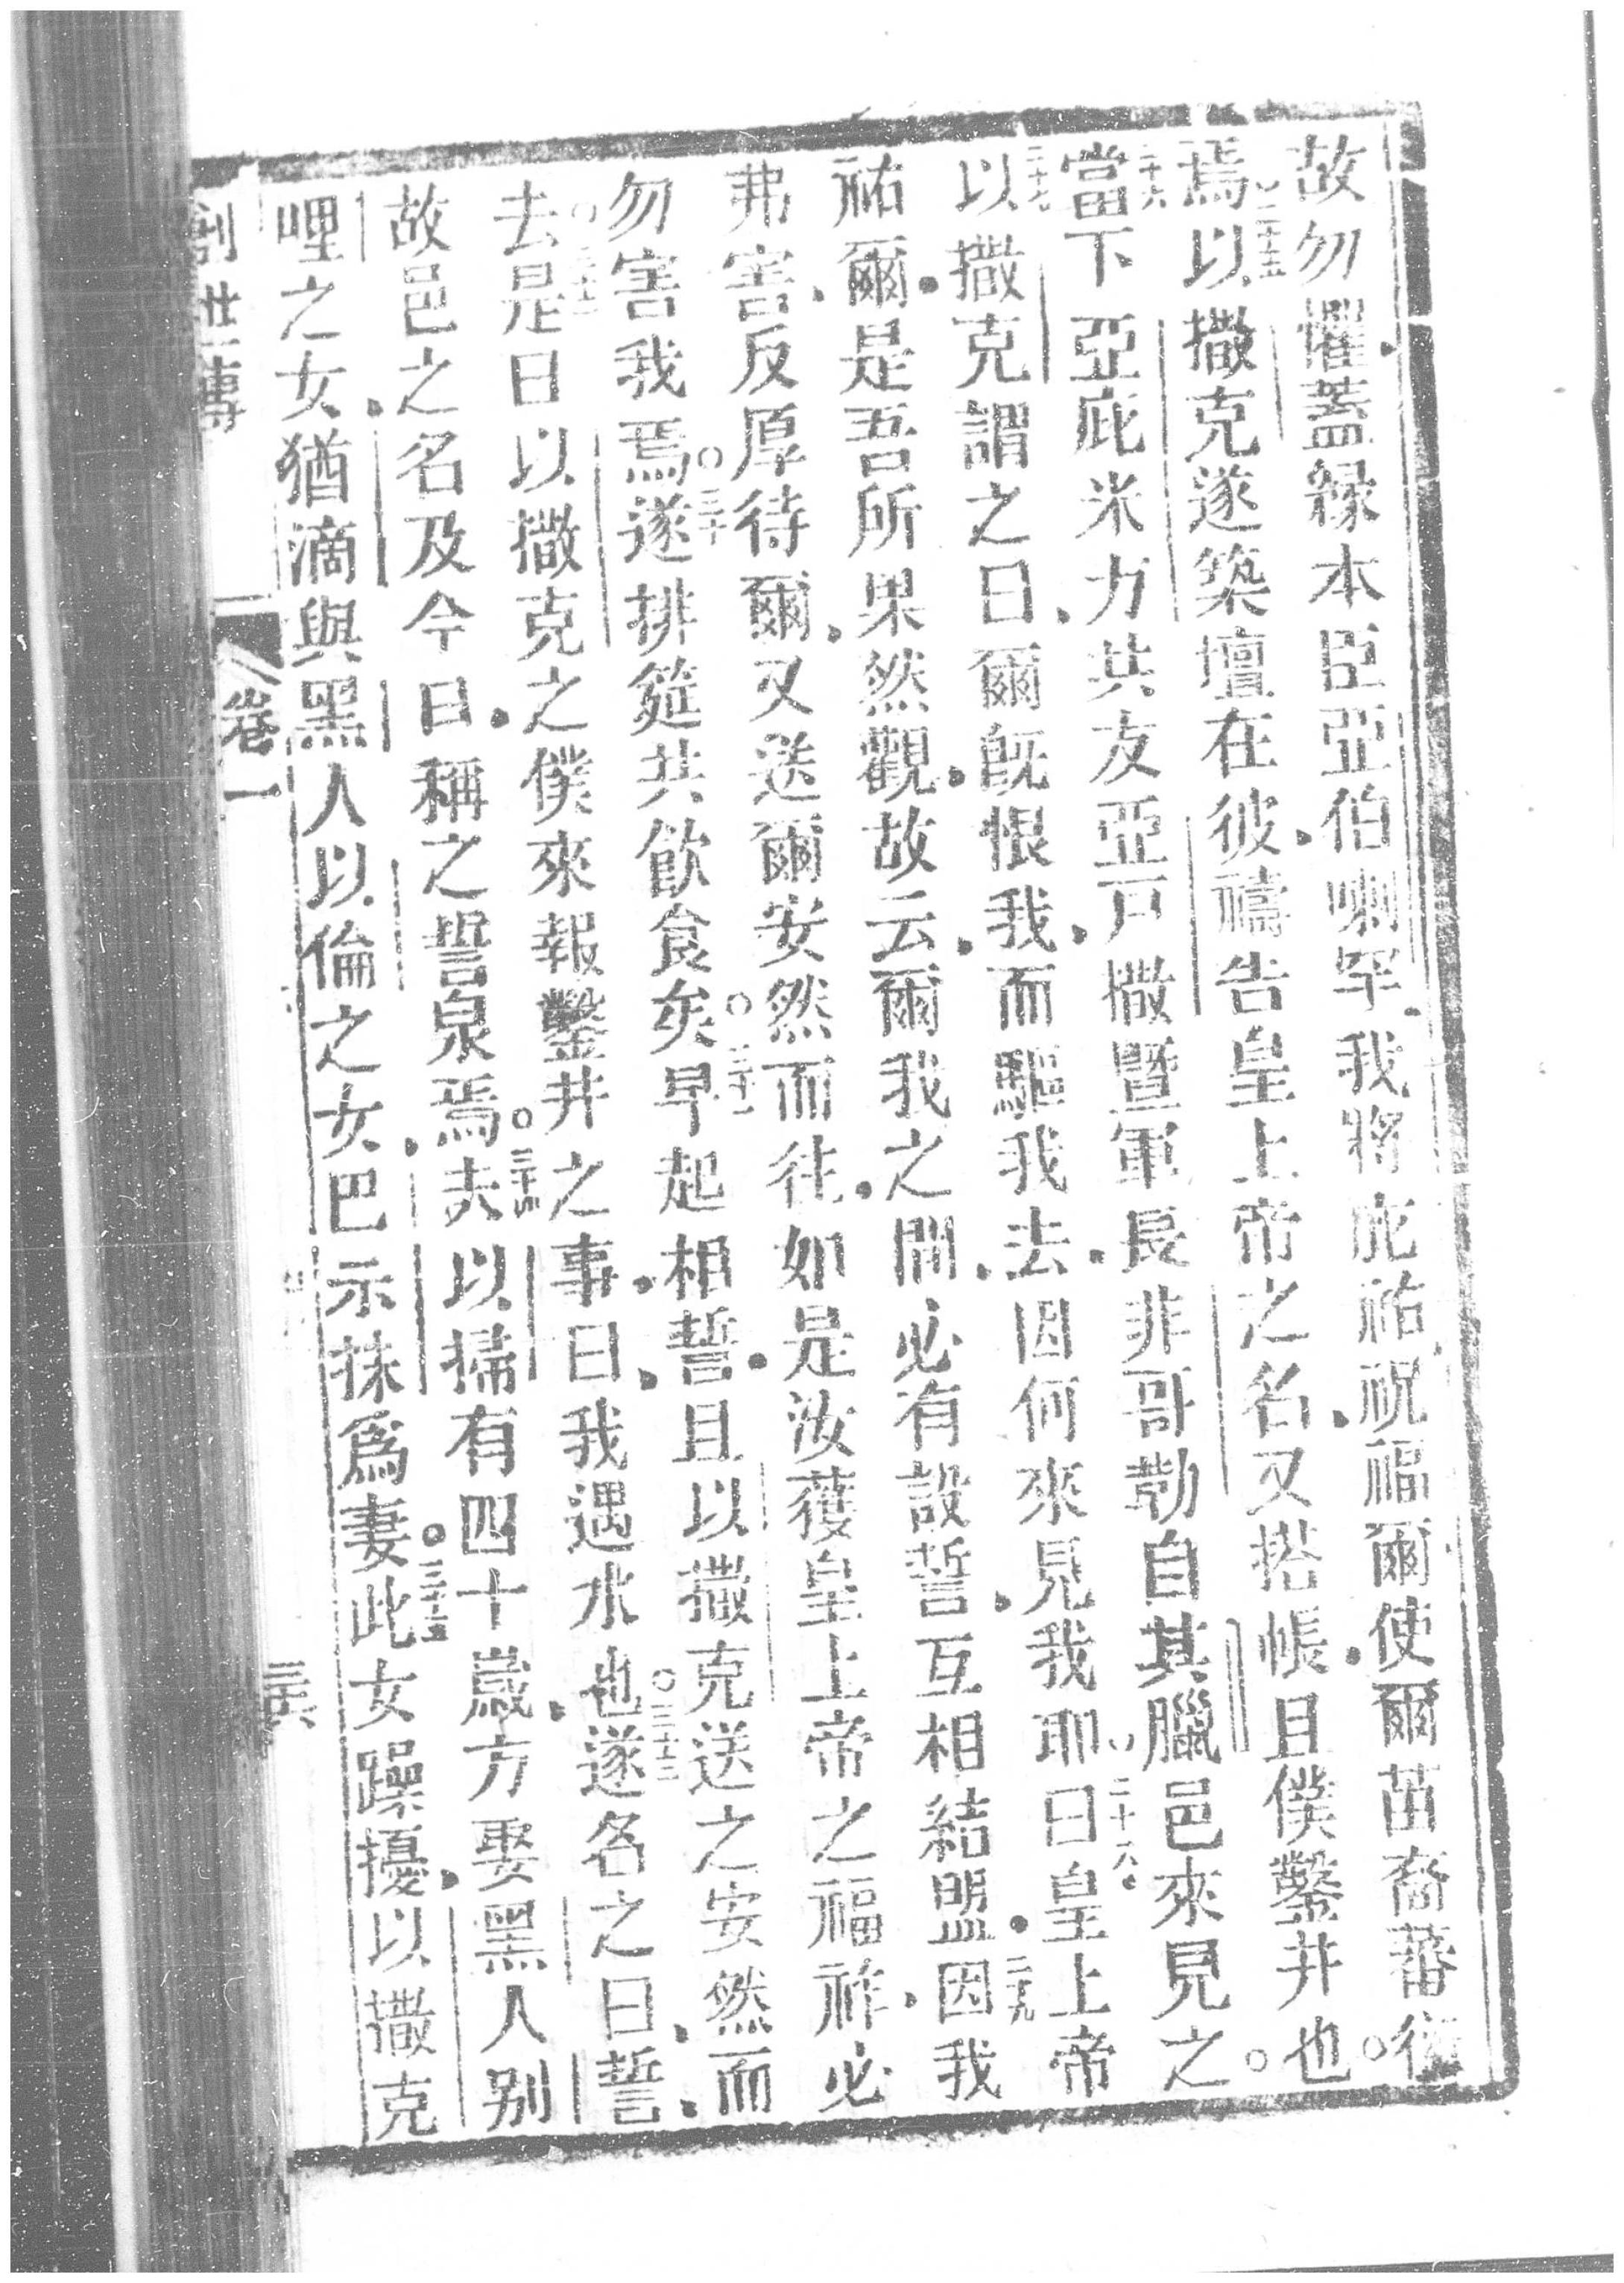 故勿懼蓋緣本臣亞伯喇罕我將庇祐祝福爾使爾苗裔蕃衍
焉二十五以撒克遂築壇在彼禱告皇上帝之名又搭帳且僕鑿井也
二十六當下亞庇米力共友亞戸撒暨軍長非哥勎自其臘邑來見之
二十七以撒克謂之曰爾旣恨我而驅我去因何來見我耶二十八曰皇上帝
祐爾是吾所果然觀故云爾我之間必有設誓互相結盟二十九因我
弗害反厚待爾又送爾安然而往如是汝獲皇上帝之福祚必
勿害我焉三十遂排筵共飲食矣三十一早起相誓且以撒克送之安然而
去三十二是日以撒克之僕來報鑿井之事曰我遇水也三十三遂名之曰誓
故邑之名及今日稱之誓泉焉三十四夫以掃有四十歲方娶黑人別
哩之女猶滴與黑人以倫之女巴示抹爲妻三十五此女躁擾以撒克
創世傳 卷一